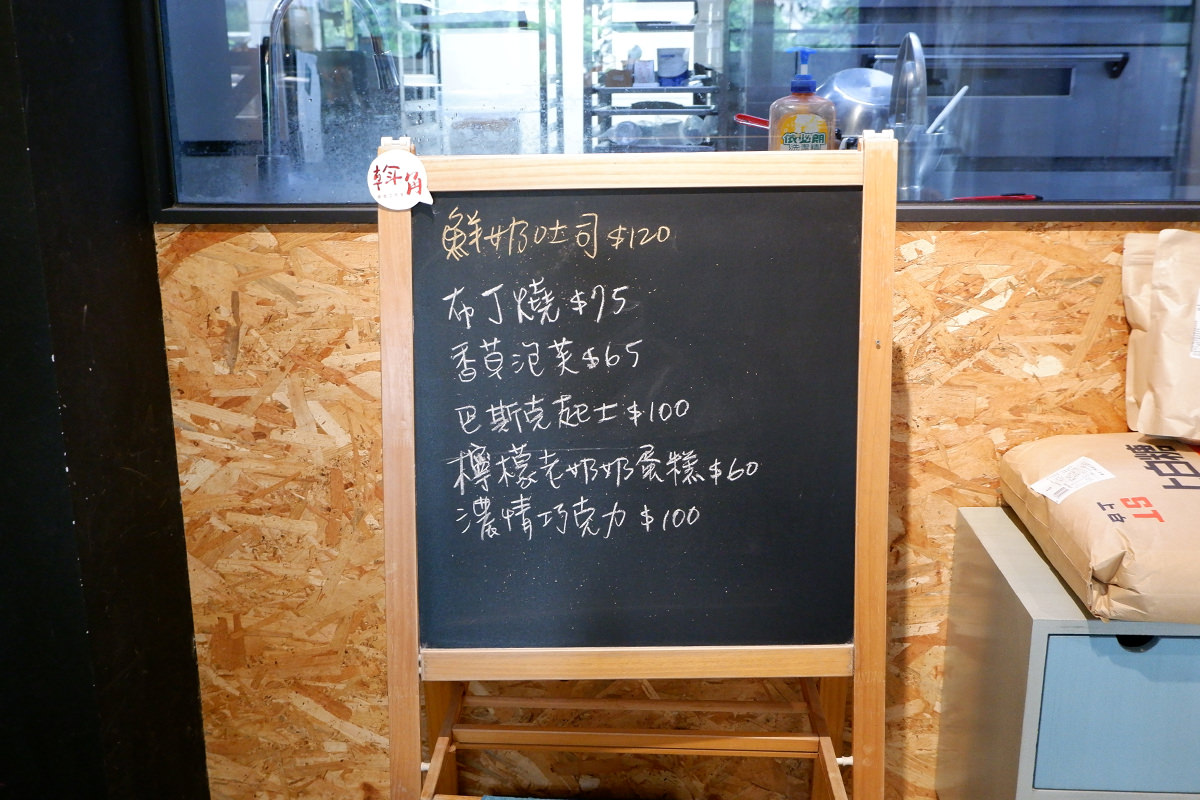 依必朗
鮮奶吐司 $120
布丁燒 $75
香草泡芙 $65
巴斯克起士 $100
檸檬老奶奶蛋糕 $60
濃情巧克力 $100
5T
上白